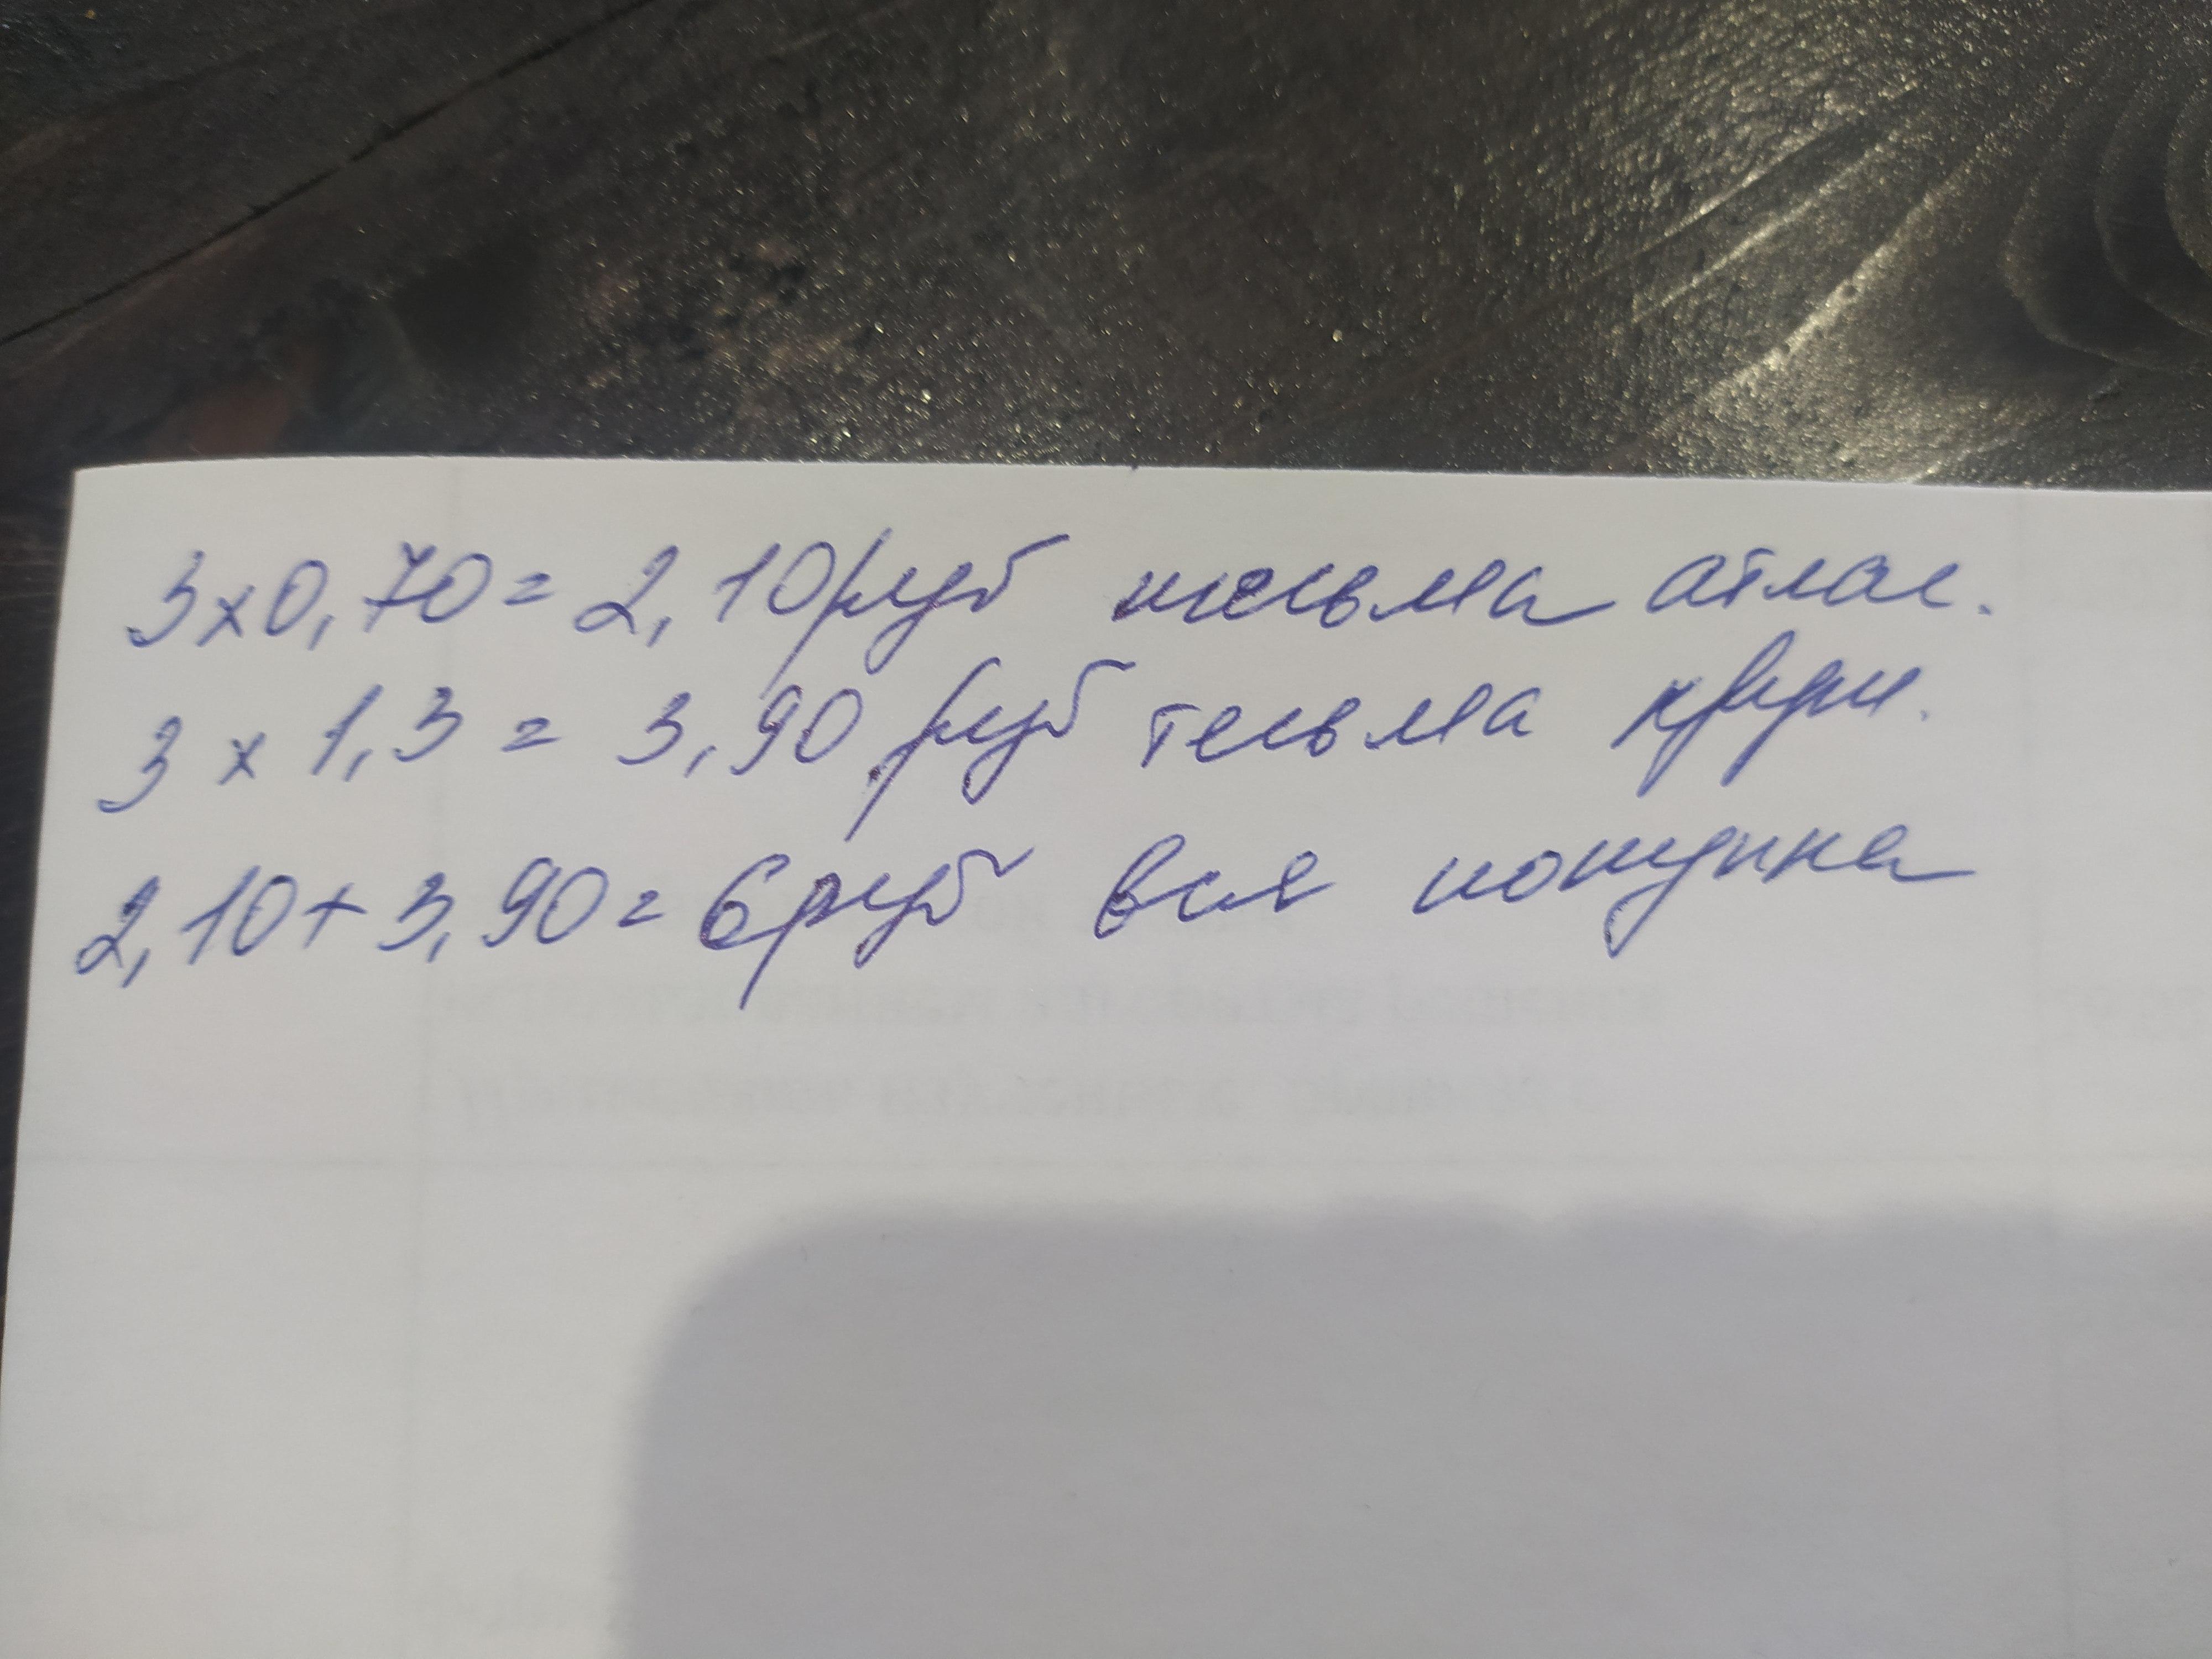 3х0,70=2,10руб тесьма атлас.
3 х 1,3 = 3,90 руб тесьма
2,10+3,90=6руб вся покупка